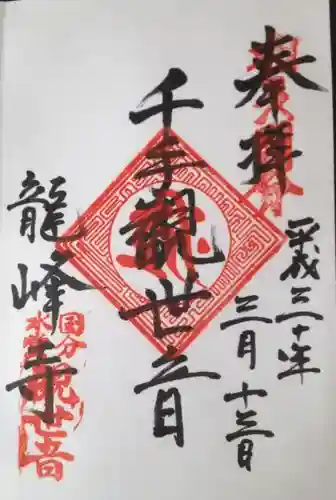 奉拝
平成三十年
三月十三日
千手觀世音
龍峰寺
国分
水堂
観世音